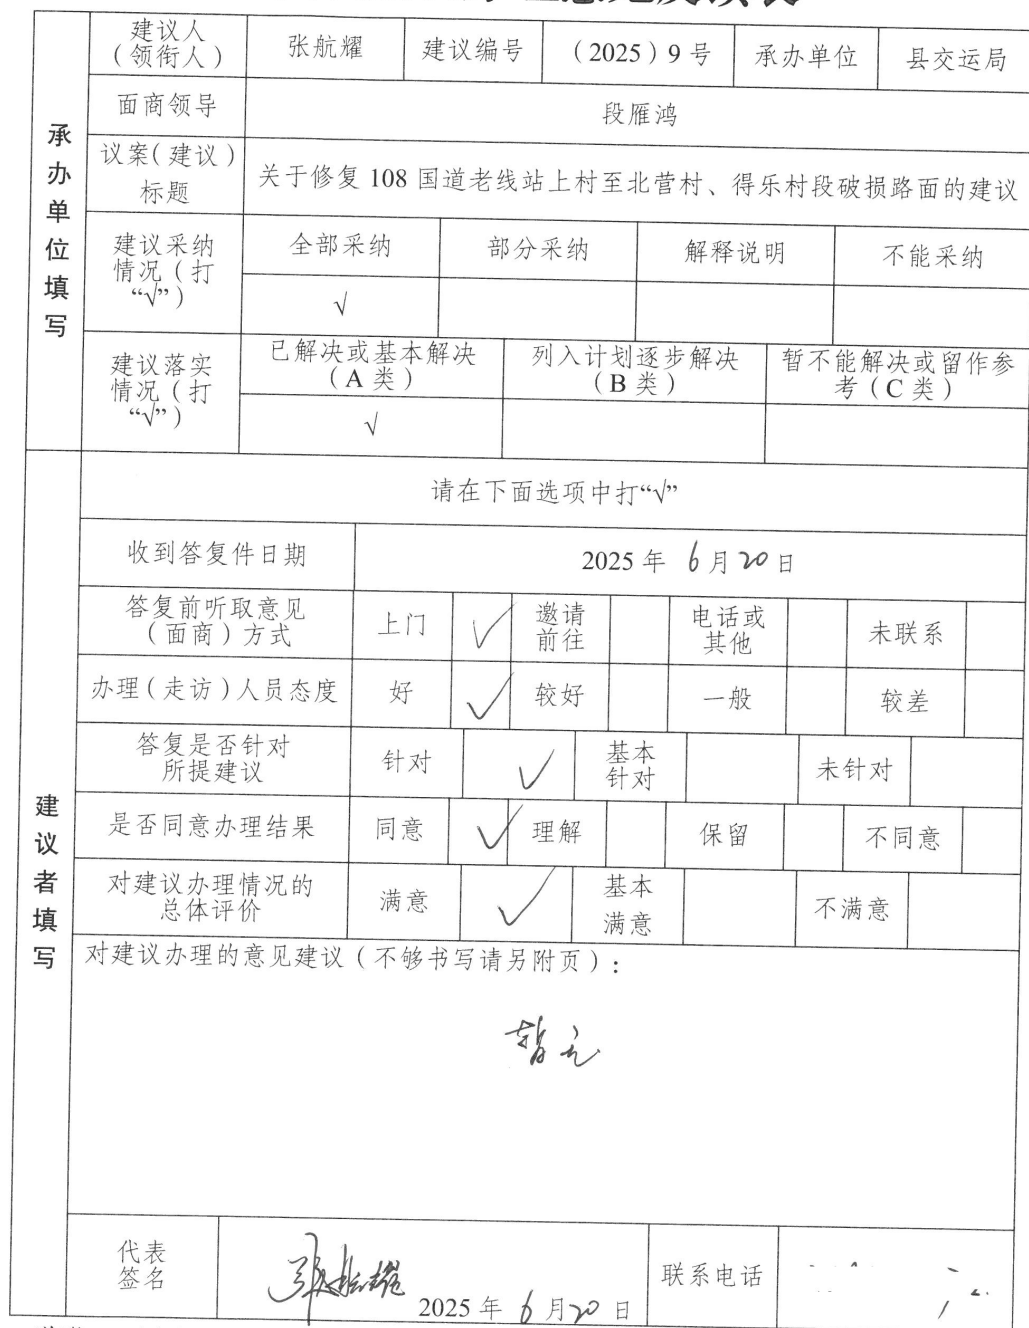 建议人
（领衔人）
张航耀
建议编号
（2025）9号
承办单位
县交运局
面商领导
段雁鸿
议案（建议）
标题
关于修复 108 国道老线站上村至北营村、得乐村段破损路面的建议
承办单位填写
建议采纳
情况（打
“√”）
全部采纳
部分采纳
解释说明
不能采纳
√
建议落实
情况（打
“√”）
已解决或基本解决
（A 类）
列入计划逐步解决
（B 类）
暂不能解决或留作参
考（C 类）
√
请在下面选项中打“√”
收到答复件日期
2025 年 6月20日
答复前听取意见
（面商）方式
上门
√
邀请
前往
电话或
其他
未联系
办理（走访）人员态度
好
√
较好
一般
较差
答复是否针对
所提建议
针对
√
基本
针对
未针对
建议者填写
是否同意办理结果
同意
√
理解
保留
不同意
对建议办理情况的
总体评价
满意
√
基本
满意
不满意
对建议办理的意见建议（不够书写请另附页）:
暂无
代表
签名
张航耀
2025 年 6月20日
联系电话